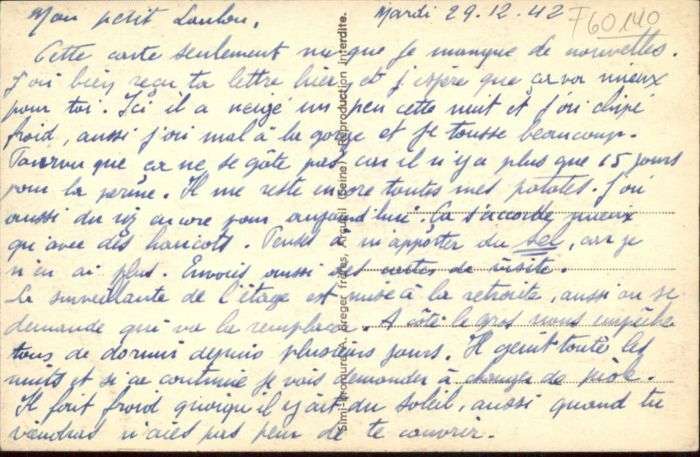 Mon petit Loulou,
Mardi 29.12.42
F60140
Cette carte seulement vu que je manque de nouvelles.
J'ai bien reçu ta lettre hier et j'espère que ça va mieux
pour toi. Ici il a neigé un peu cette nuit et j'ai chipé
froid, aussi j'ai mal à la gorge et je tousse beaucoup.
Pourvu que ça ne se gâte pas car il n'y a plus que 15 jours
pour la perme. Il me reste encore toutes mes patates. J'ai
aussi du riz encore pour aujourd'hui. Ça s'accorde mieux
qu'avec des haricots. Penses à m'apporter du sel, car je
n'en ai plus. Envoies aussi des cartes de visite.
La surveillante de l'étage est mise à la retraite, aussi on se
demande qui va la remplacer. A côté le gros nous empêche
tous de dormir depuis plusieurs jours. Il gémit toutes les
nuits et si ça continue je vais demander à changer de piole.
Il fait froid quoiqu'il y ait du soleil, aussi quand tu
viendras n'aies pas peur de te couvrir.
Simi-Bromure A. Breger frères, Arcueil (Seine) - Reproduction Interdite.